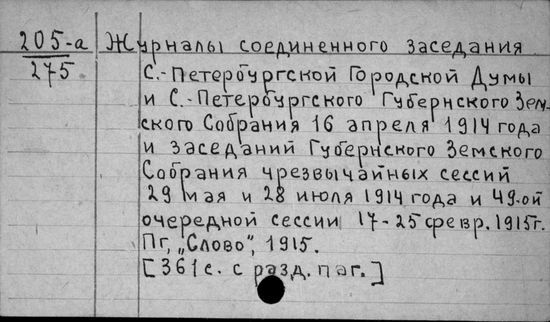 205-а Журналы соединенного заседания
275 С.-Петербургской Городской Думы
и С.-Петербургского Губернского Зем-
ского Собрания 16 апреля 1914 года
и заседаний Губернского Земского
Собрания чрезвычайных сессий
29 мая и 28 июля 1914 года и 49-ой
очередной сессии 17-25 февр. 1915г.
Пг, „Слово", 1915.
[361с. с разд. паг.]